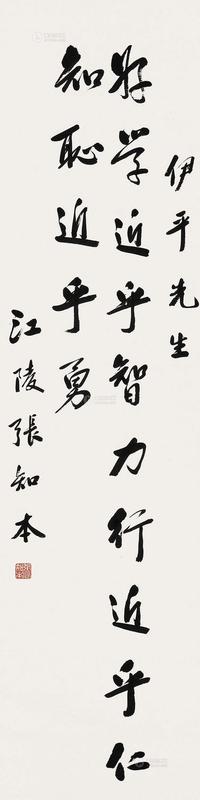 伊平先生
好学近乎智力行近乎仁
知恥近乎勇
江陵張知本